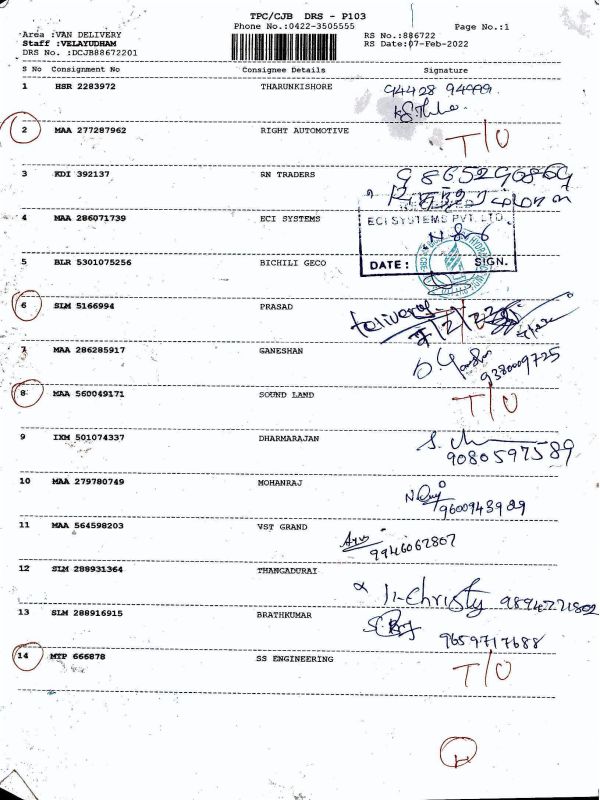 TPC/CJB DRS - P103
Phone No.:0422-3505555 Page No.:1
Area :VAN DELIVERY RS No.:886722
Staff :VELAYUDHAM RS Date:07-Feb-2022
DRS No. :DCJB88672201
S No Consignment No Consignee Details Signature
1 HSR 2283972 THARUNKISHORE 94428 94999
2 MAA 277287962 RIGHT AUTOMOTIVE T/O
3 KDI 392137 RN TRADERS 9865290869
4 MAA 286071739 ECI SYSTEMS
ECI SYSTEMS PVT. LTD.
5 BLR 5301075256 BICHILI GECO
DATE: SIGN.
6 SLM 5166994 PRASAD
7 MAA 286285917 GANESHAN 9380009725
8 MAA 560049171 SOUND LAND T/O
9 IXM 501074337 DHARMARAJAN
9080597589
10 MAA 279780749 MOHANRAJ
9600943909
11 MAA 564598203 VST GRAND
9946062807
12 SLM 288931364 THANGADURAI
Christy
13 SLM 288916915 BRATHKUMAR
9659717688
14 MTP 666878 SS ENGINEERING T/O